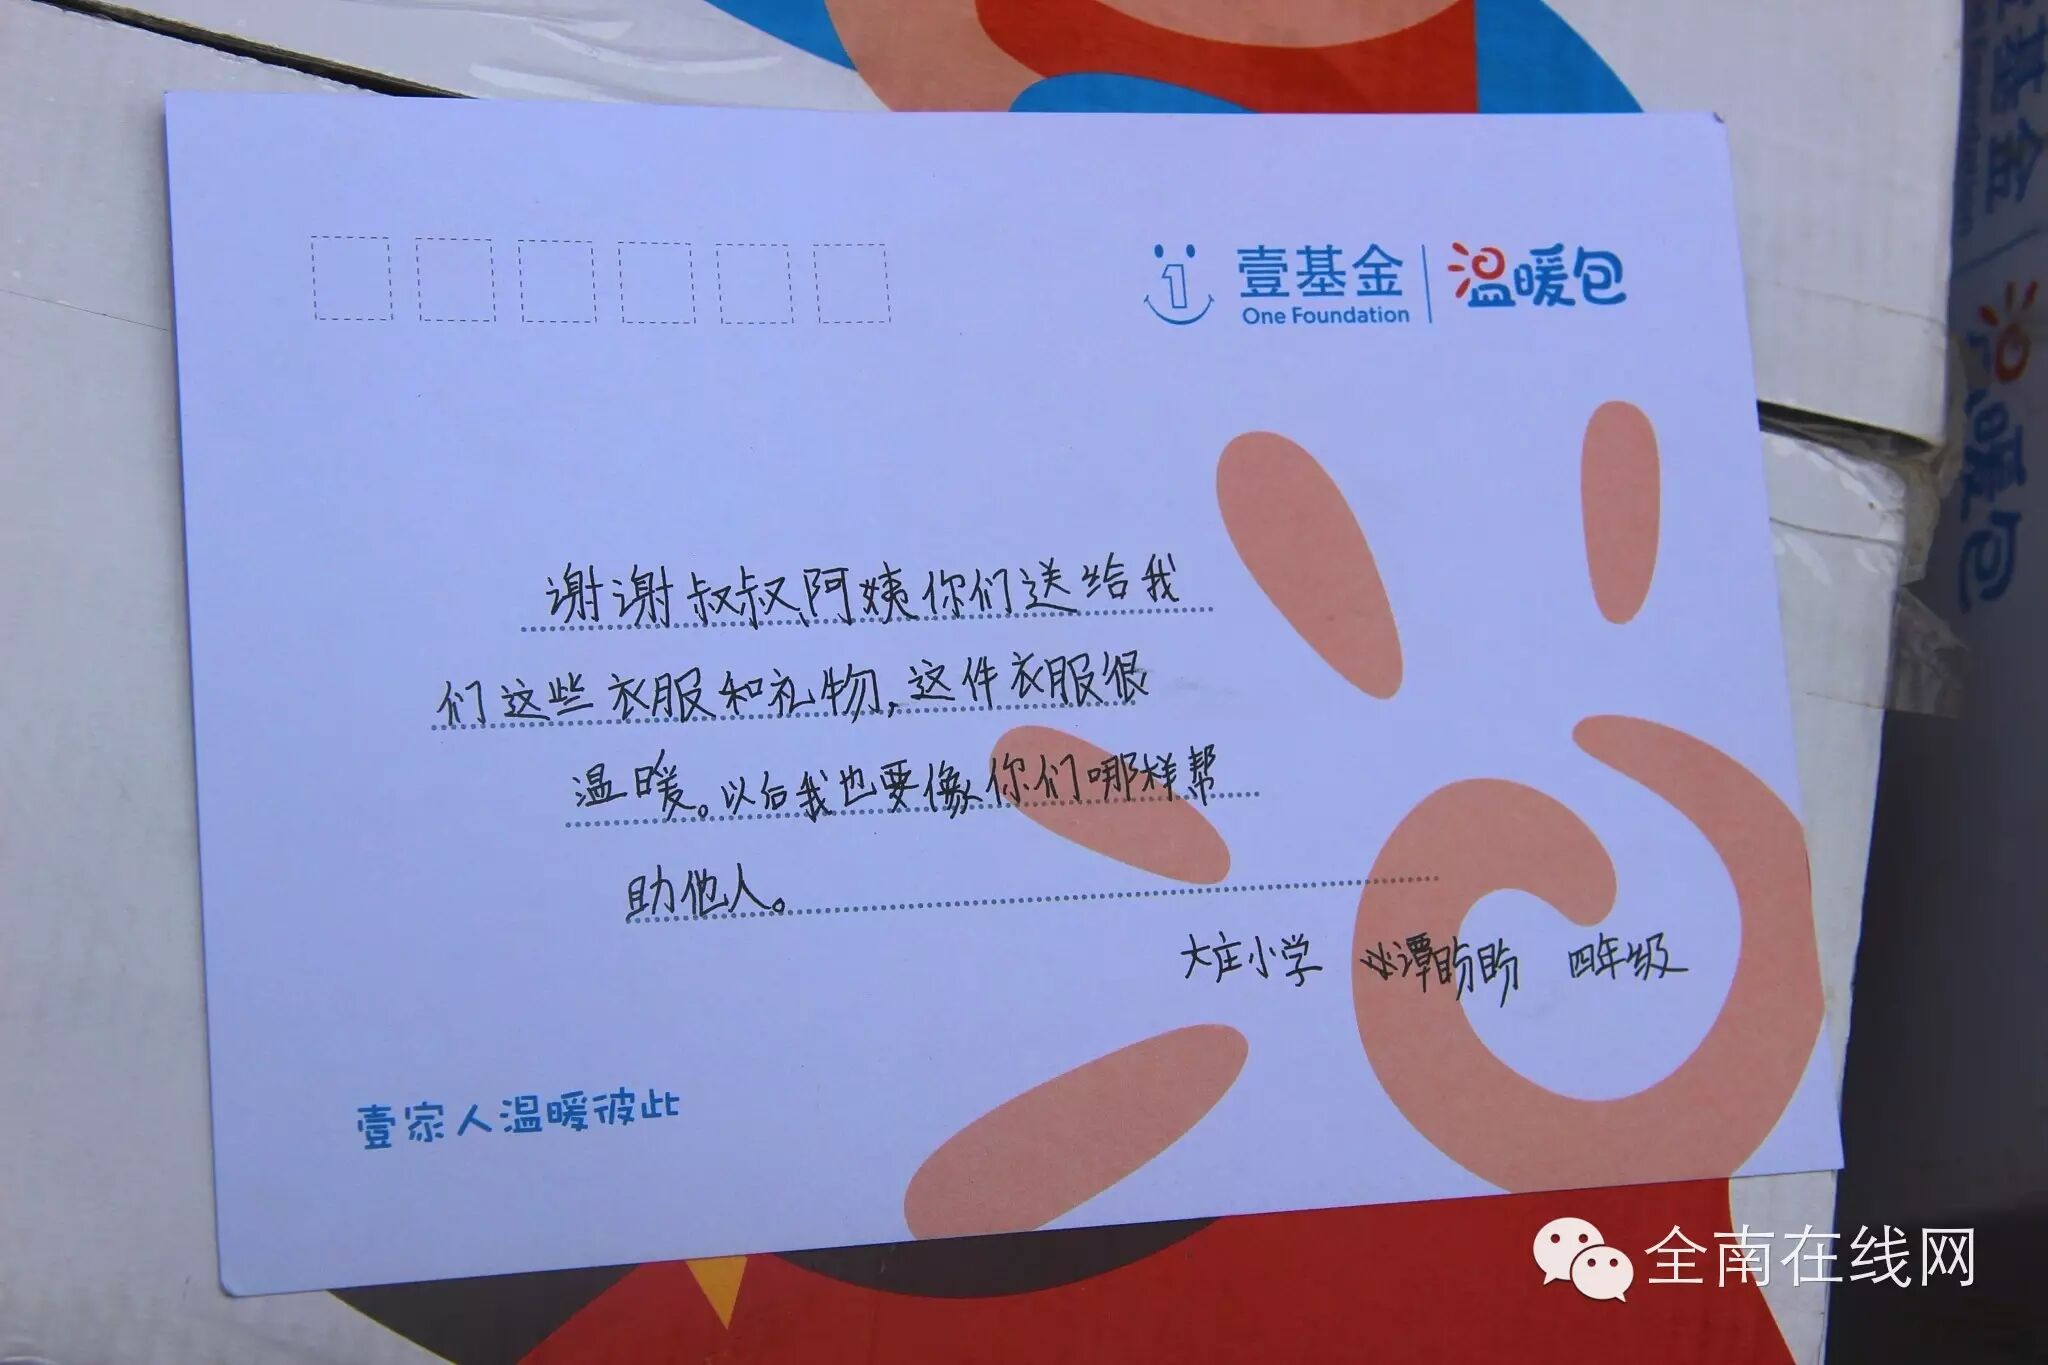 壹基金 温暖包
One Foundation
谢谢叔叔阿姨你们送给我
们这些衣服和礼物,这件衣服很
温暖。以后我也要像你们哪样帮
助他人。
大庄小学 谭盼盼 四年级
壹家人温暖彼此
基金
暖包
全南在线网